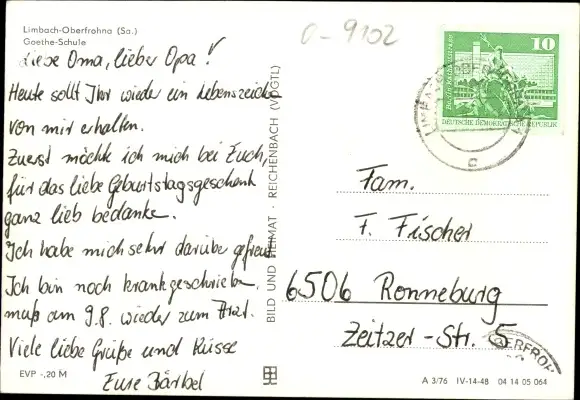 Limbach-Oberfrohna (Sa.)
Goethe-Schule
Liebe Oma, lieber Opa!
Heute sollt Ihr wieder ein Lebenszeichen
von mir erhalten.
Zuerst möchte ich mich bei Euch,
für das liebe Geburtstagsgeschenk
ganz lieb bedanken.
Ich habe mich sehr darüber gefreut.
Ich bin noch krankgeschrieben
muß am 9.8. wieder zum Arzt.
Viele liebe Grüße und Küsse
Eure Bärbel
EVP -,20 M
BILD UND HEIMAT · REICHENBACH (VOGTL)
O-9102
10
DEUTSCHE DEMOKRATISCHE REPUBLIK
c
Fam.
F. Fischer
6506 Ronneburg
Zeitzer-Str. 5
OBERFROH
A 3/76 IV-14-48 04 14 05 064